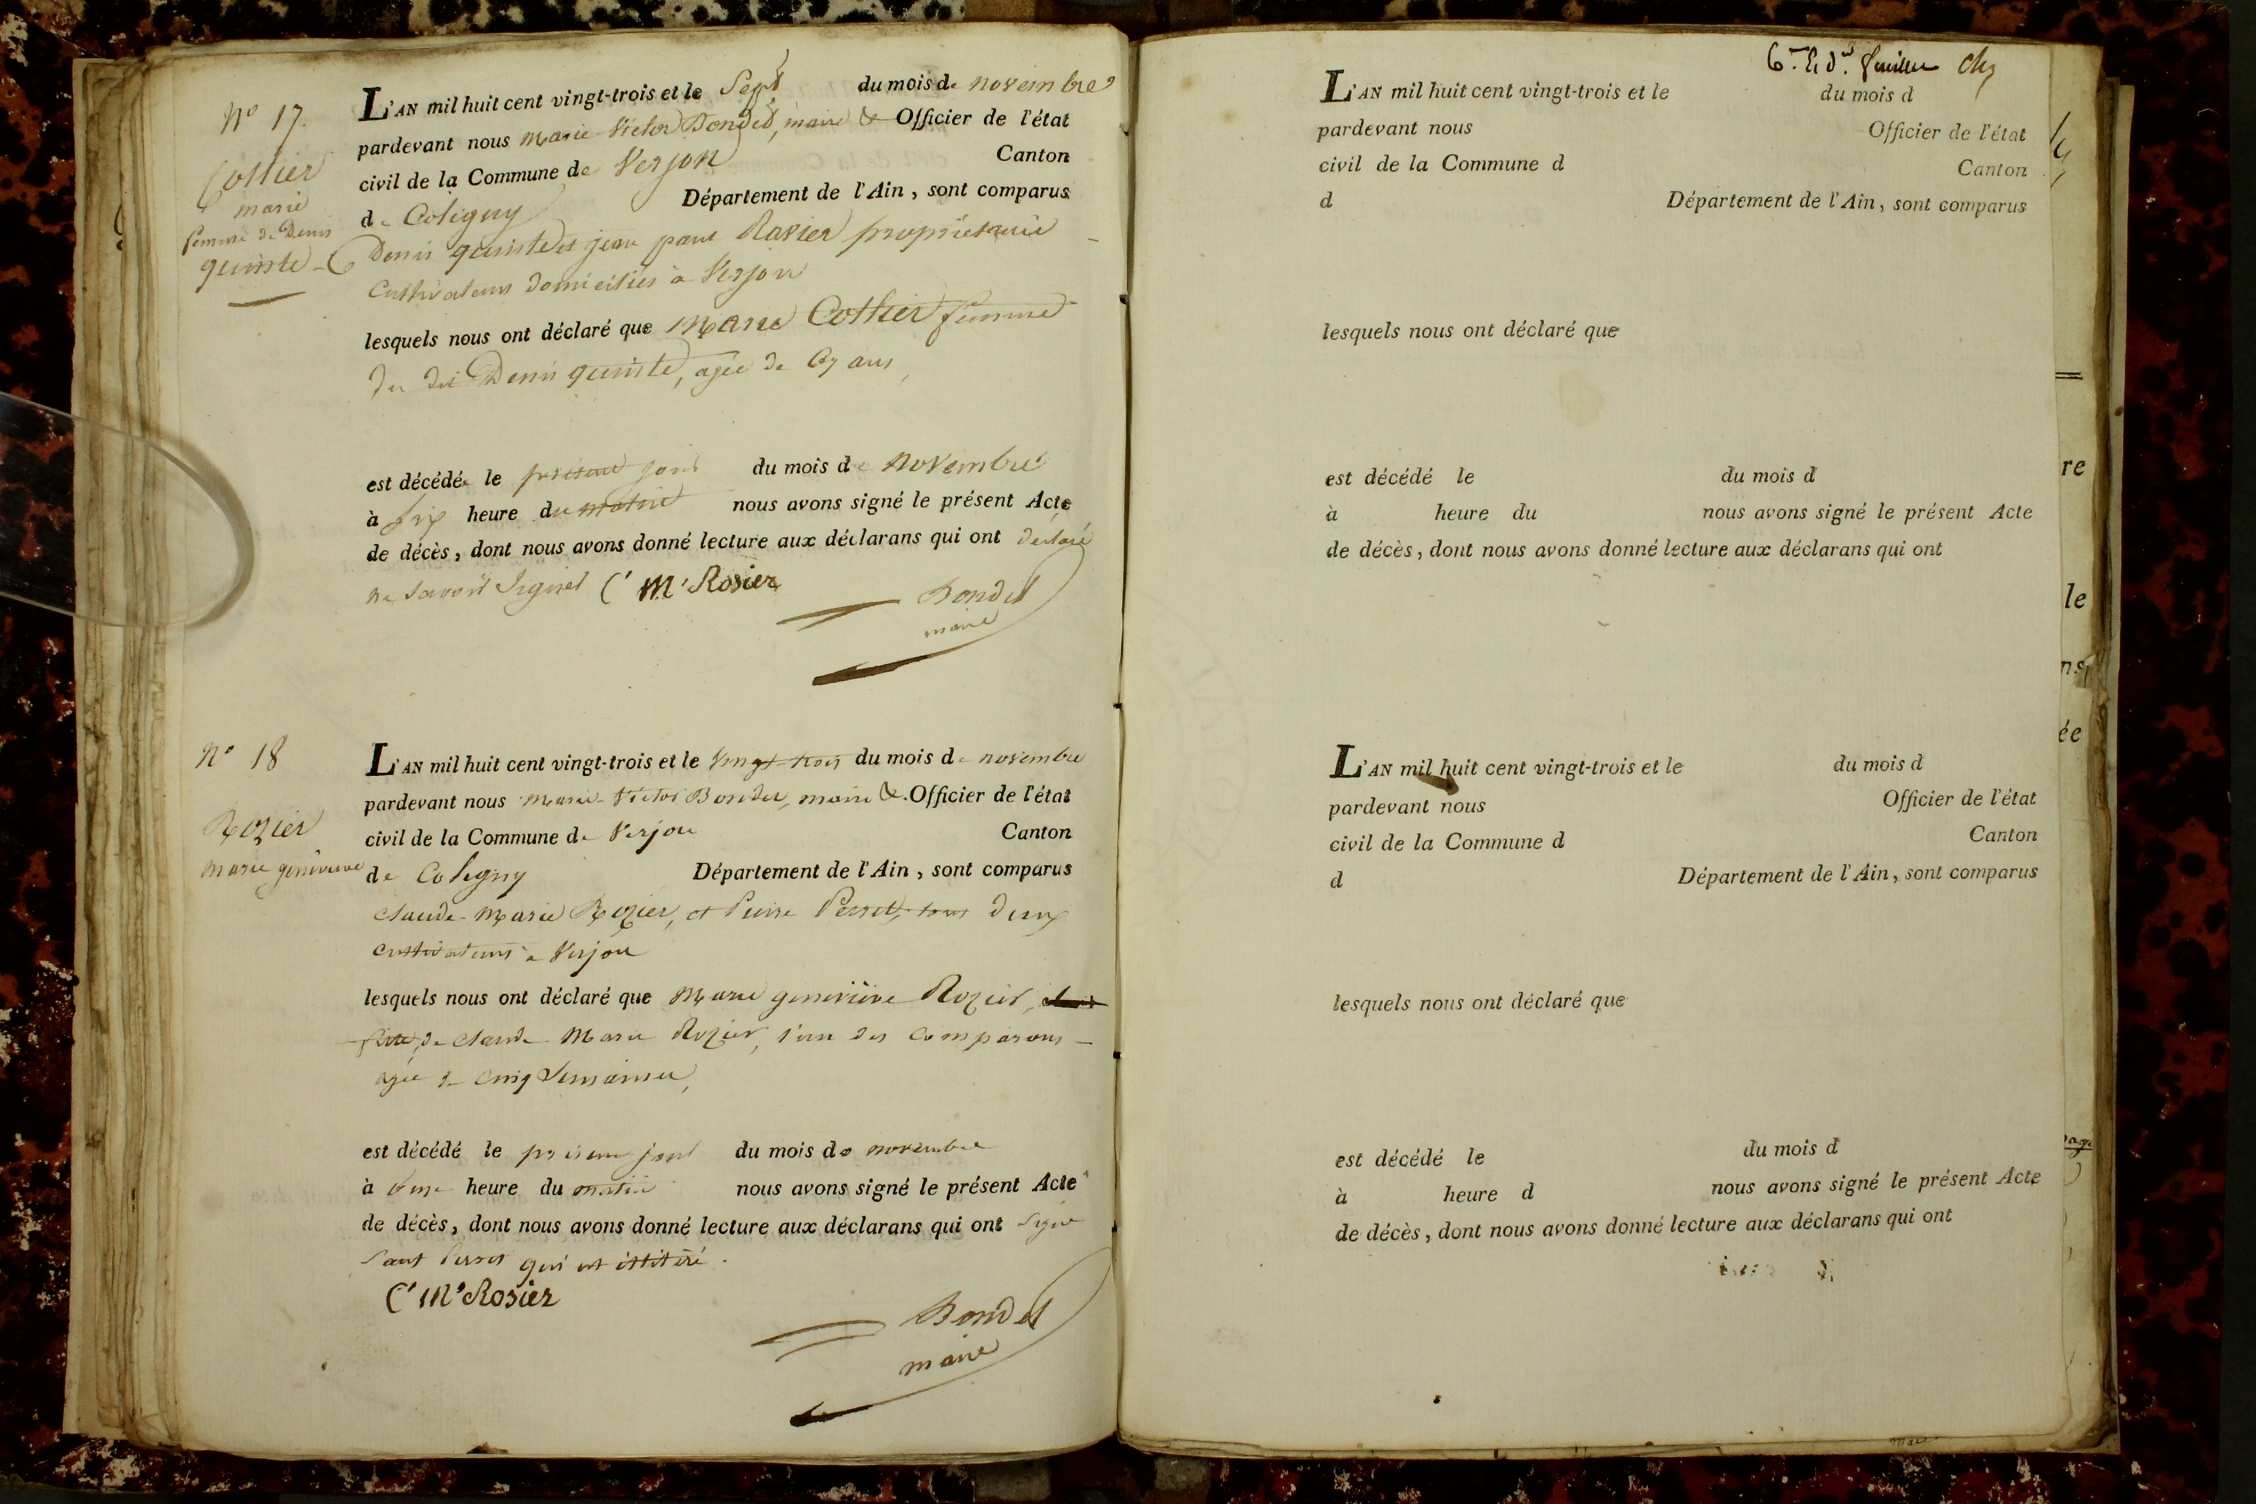 N° 17.
Cottier
marie
femme de Denis
quinste
L'AN mil huit cent vingt-trois et le Sept du mois de novembre
pardevant nous Marie Victor Bondet, maire & Officier de l'état
civil de la Commune de Verjon Canton
de Coligny Département de l'Ain, sont comparus
Denis quinste et jean paul Ravier propriétaire
Cultivateurs domiciliés à Verjon
lesquels nous ont déclaré que Marie Cottier femme
du dit Denis quinste, agée de ans
est décédée le présent jour du mois de novembre
à six heure du matin nous avons signé le présent Acte
de décès, dont nous avons donné lecture aux déclarans qui ont déclaré
ne savoir signer C' M' Rosier
Bondet
maire
N° 18
Rozier
marie genevieve
L'AN mil huit cent vingt-trois et le vingt-trois du mois de novembre
pardevant nous Marie Victor Bondet, maire & Officier de l'état
civil de la Commune de Verjon Canton
de Coligny Département de l'Ain, sont comparus
claude Marie Rozier, et Pierre Perret, tous deux
cultivateurs a Verjon
lesquels nous ont déclaré que Marie geneviève Rozier,
fille de claude Marie Rozier, l'un des comparans
agée de cinq semaines,
est décédé le présent jour du mois de novembre
à heure du matin nous avons signé le présent Acte
de décès, dont nous avons donné lecture aux déclarans qui ont signé
sauf Perret qui est illitéré.
C' M' Rosier
Bondet
maire
6.e & d.er feuillet
L'AN mil huit cent vingt-trois et le du mois d
pardevant nous Officier de l'état
civil de la Commune d Canton
d Département de l'Ain, sont comparus
lesquels nous ont déclaré que
est décédé le du mois d
à heure du nous avons signé le présent Acte
de décès, dont nous avons donné lecture aux déclarans qui ont
L'AN mil huit cent vingt-trois et le du mois d
pardevant nous Officier de l'état
civil de la Commune d Canton
d Département de l'Ain, sont comparus
lesquels nous ont déclaré que
est décédé le du mois d
à heure d nous avons signé le présent Acte
de décès, dont nous avons donné lecture aux déclarans qui ont
re
le
ns
ée